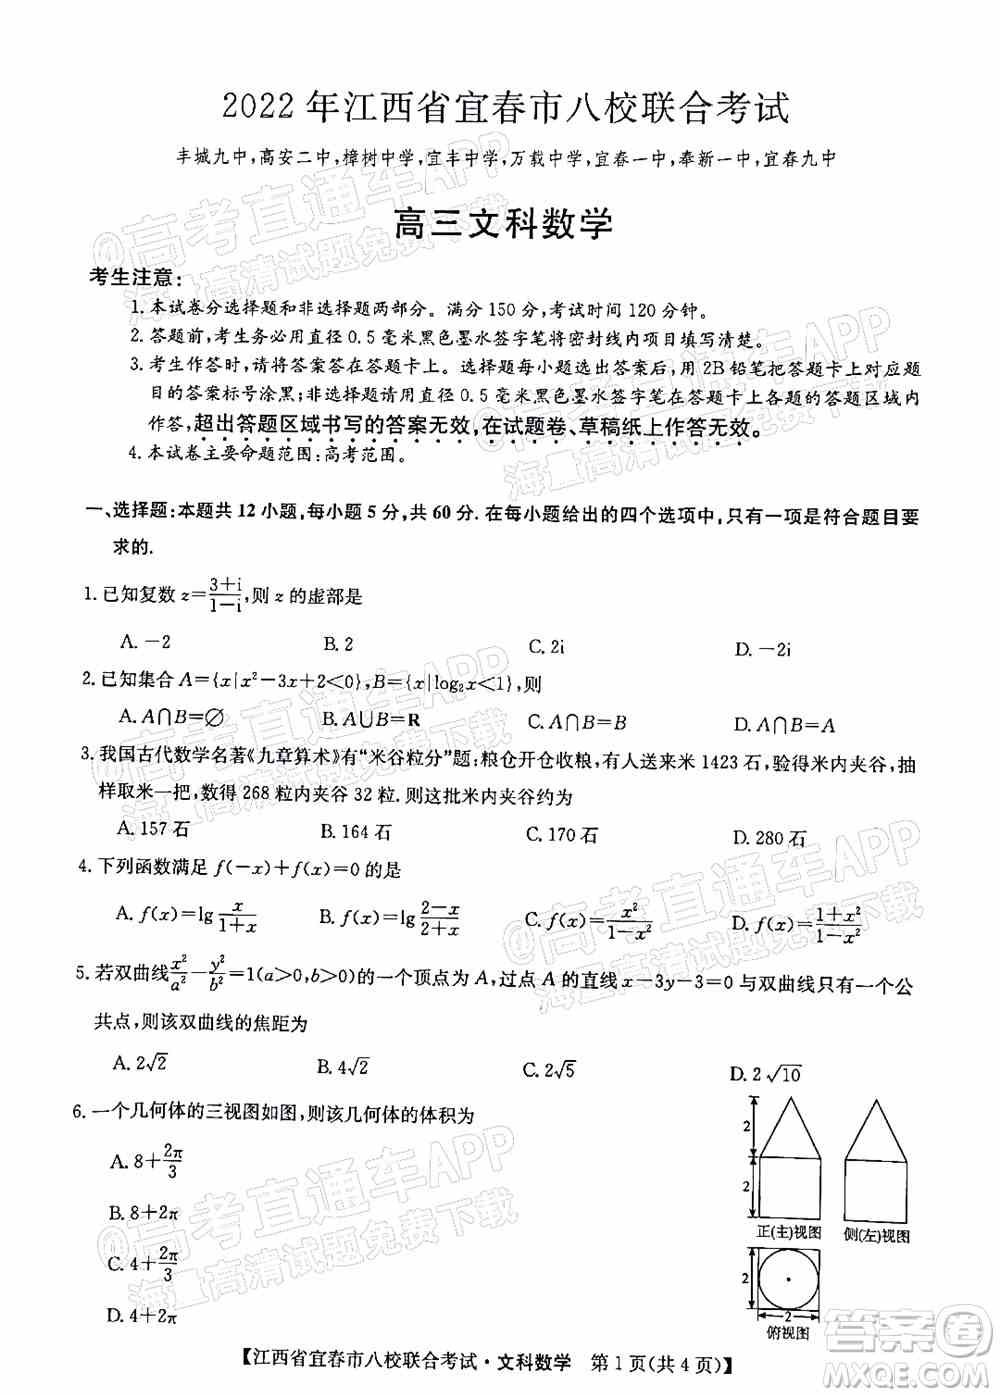 2022年江西省宜春市八校联合考试
丰城九中,高安二中,樟树中学,宜丰中学,万载中学,宜春一中,奉新一中,宜春九中
高三文科数学
考生注意:
1.本试卷分选择题和非选择题两部分。满分150分,考试时间120分钟。
2.答题前,考生务必用直径0.5毫米黑色墨水签字笔将密封线内项目填写清楚。
3.考生作答时,请将答案答在答题卡上。选择题每小题选出答案后,用2B铅笔把答题卡上对应题
目的答案标号涂黑;非选择题请用直径0.5毫米黑色墨水签字笔在答题卡上各题的答题区域内
作答,超出答题区域书写的答案无效,在试题卷、草稿纸上作答无效。
4.本试卷主要命题范围:高考范围。
一、选择题:本题共12小题,每小题5分,共60分.在每小题给出的四个选项中,只有一项是符合题目要
求的.
1.已知复数z=\frac{3+i}{1-i},则z的虚部是
A.-2 B.2 C.2i D.-2i
2.已知集合A={x|x²-3x+2<0},B={x|log₂x<1},则
A.A∩B=∅ B.A∪B=R C.A∩B=B D.A∩B=A
3.我国古代数学名著《九章算术》有“米谷粒分”题:粮仓开仓收粮,有人送来米1423石,验得米内夹谷,抽
样取米一把,数得268粒内夹谷32粒.则这批米内夹谷约为
A.157石 B.164石 C.170石 D.280石
4.下列函数满足f(-x)+f(x)=0的是
A.f(x)=lg\frac{x}{1+x} B.f(x)=lg\frac{2-x}{2+x} C.f(x)=\frac{x²}{1-x²} D.f(x)=\frac{1+x²}{1-x²}
5.若双曲线\frac{x²}{a²}-\frac{y²}{b²}=1(a>0,b>0)的一个顶点为A,过点A的直线x-3y-3=0与双曲线只有一个公
共点,则该双曲线的焦距为
A.2√2 B.4√2 C.2√5 D.2√10
6.一个几何体的三视图如图,则该几何体的体积为
A.8+\frac{2π}{3}
B.8+2π
C.4+\frac{2π}{3}
D.4+2π
2
2
正(主)视图 侧(左)视图
2
2
俯视图
【江西省宜春市八校联合考试·文科数学 第1页(共4页)】
@高考直通车APP
海量高清试题免费下载
@高考直通车APP
海量高清试题免费下载
@高考直通车APP
海量高清试题免费下载
@高考直通车APP
海量高清试题免费下载
@高考直通车APP
海量高清试题免费下载
答案卷
MXQE.COM